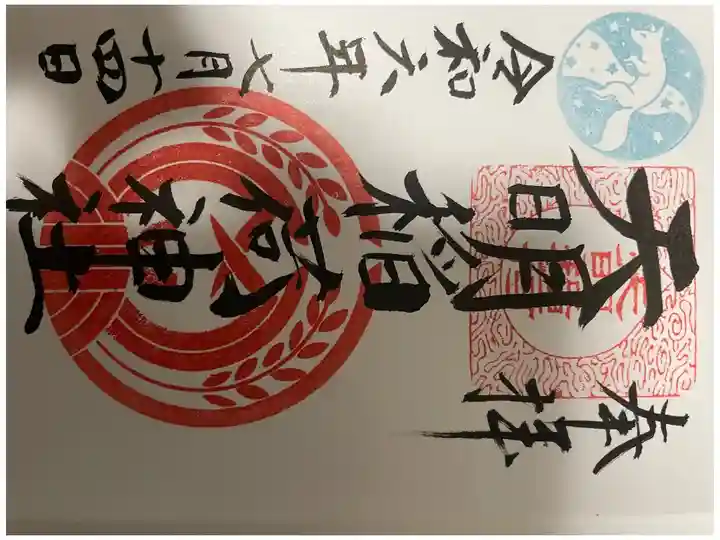 奉拝
天明稲荷神社
令和六年七月十四日